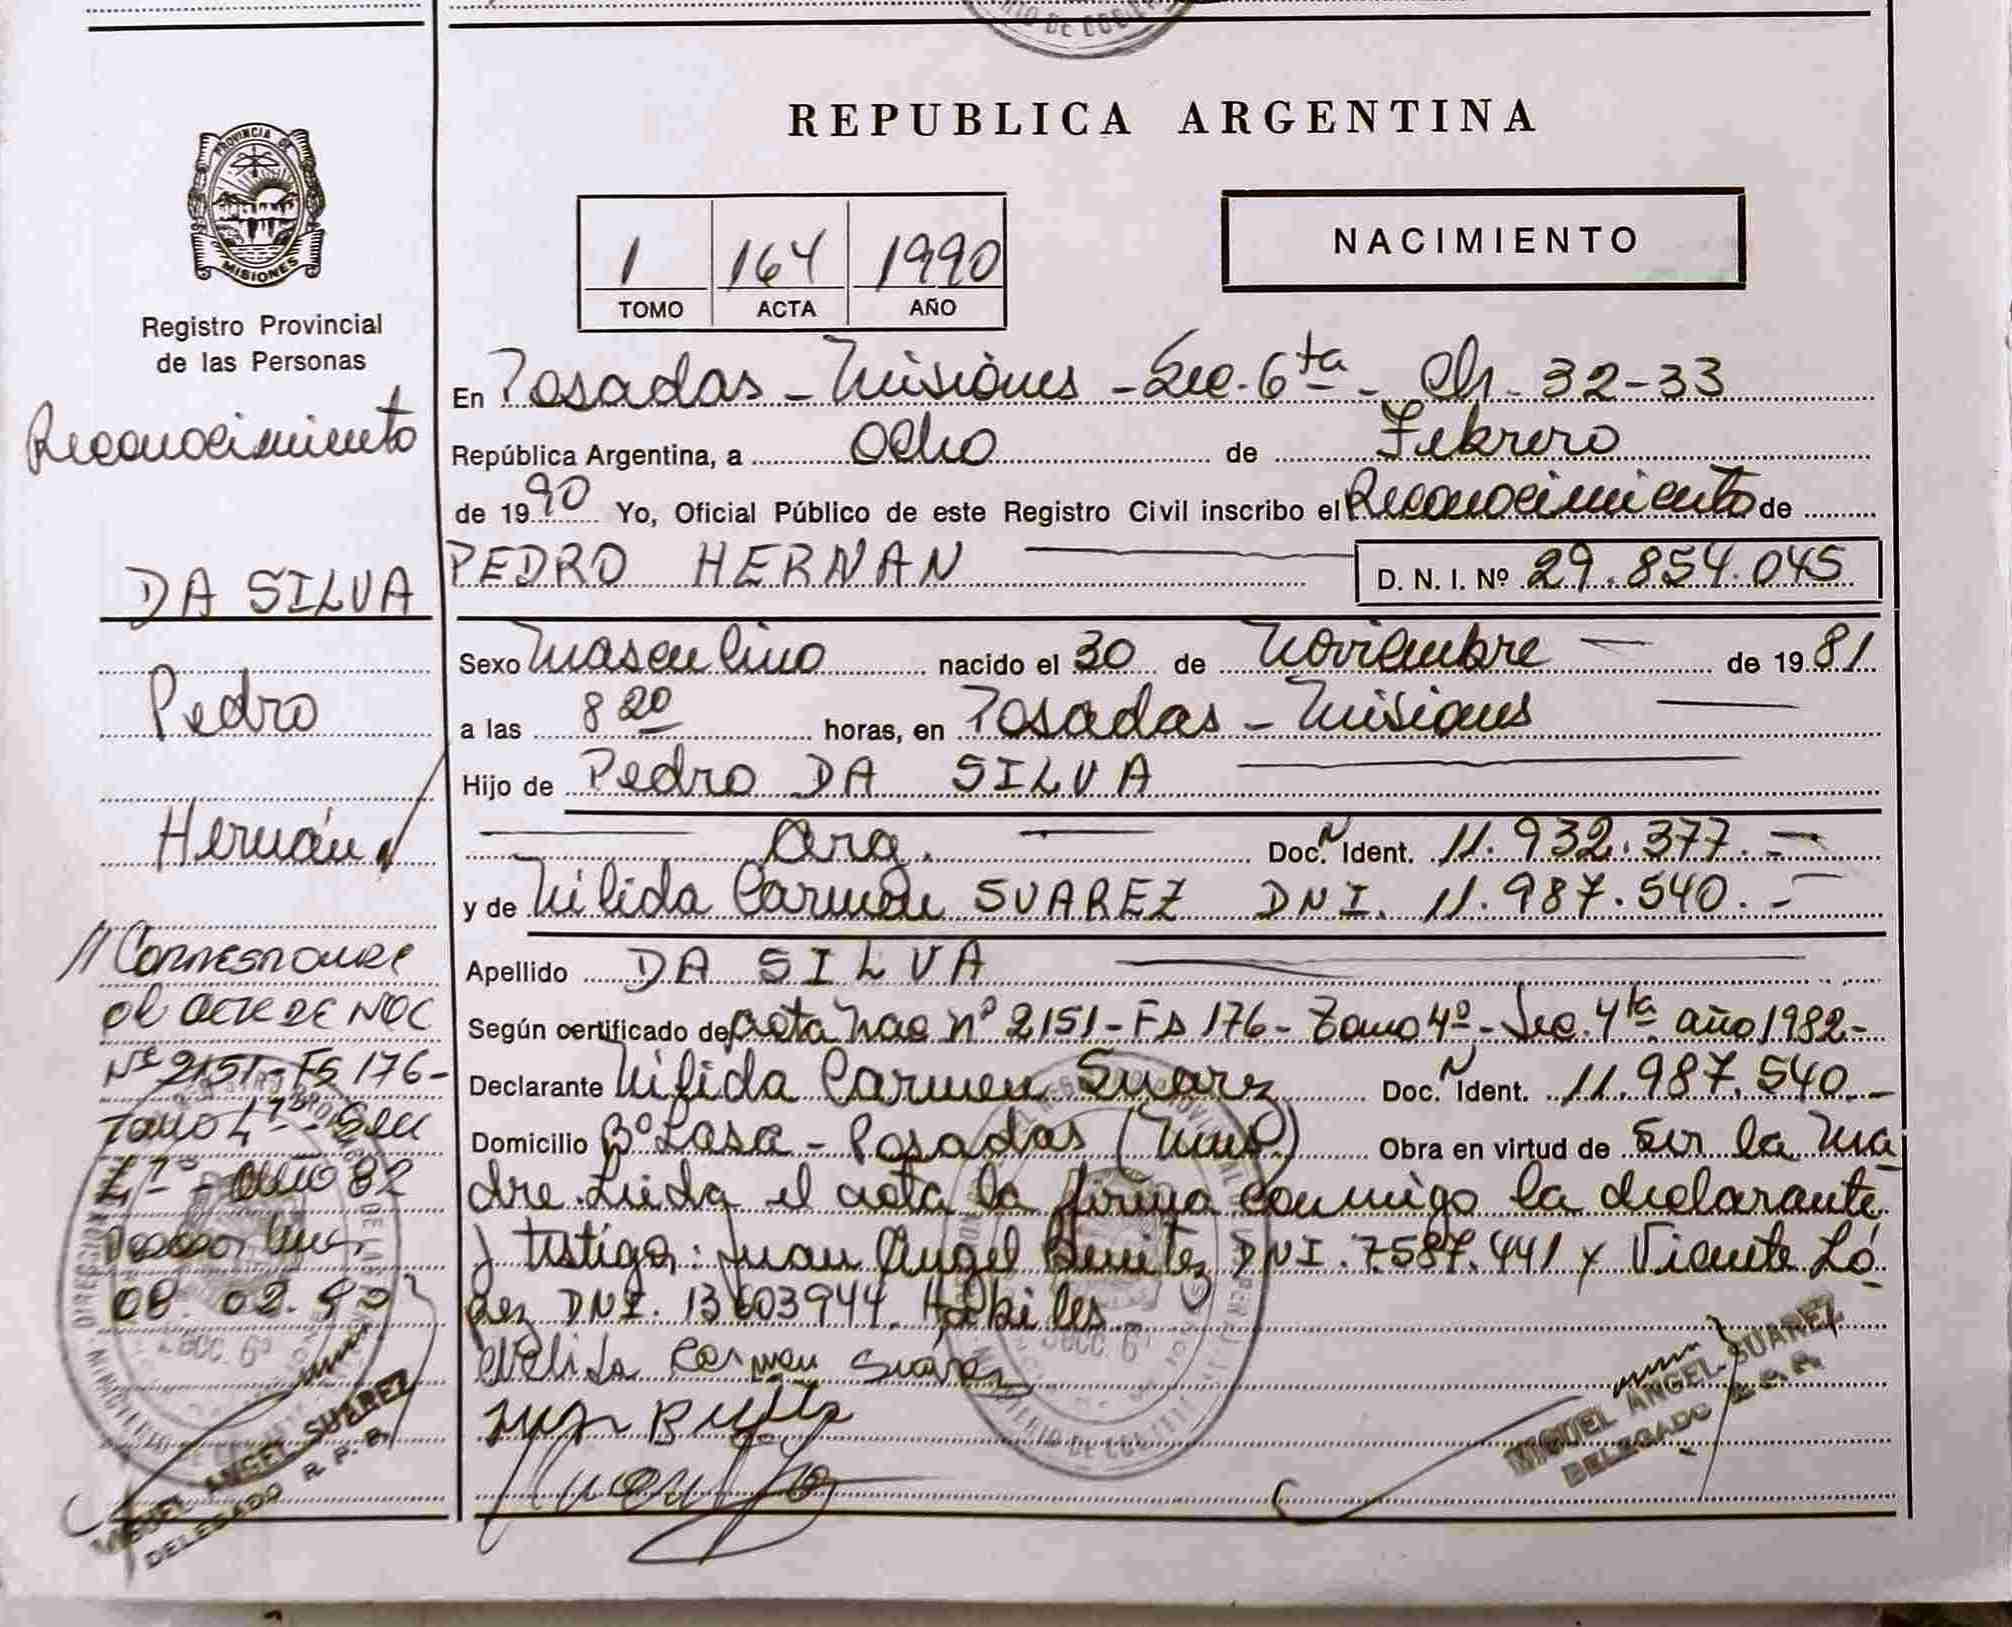 REPUBLICA ARGENTINA
PROVINCIA DE
MISIONES
Registro Provincial
de las Personas
1 164 1990
TOMO ACTA AÑO
NACIMIENTO
Reconocimiento
DA SILVA
Pedro
Hernán
// Corresponde
al acta de Nac
Nº 2151-Fs 176-
Tomo 4º - Sec
4ª - año 82
08.02.90
MIGUEL ANGEL SUAREZ
DELEGADO R. P. P.
En Posadas - Misiones - Sec. 6ta - Ch. 32-33
República Argentina, a Ocho de Febrero
de 1990 Yo, Oficial Público de este Registro Civil inscribo el Reconocimiento de
PEDRO HERNAN D. N. I. Nº 29.854.045
Sexo Masculino nacido el 30 de Noviembre de 1981
a las 8 20 horas, en Posadas - Misiones
Hijo de Pedro DA SILVA
Arg. Doc. N Ident. 11.932.377.-
y de Nilida Carmen SUAREZ DNI. 11.987.540.-
Apellido DA SILVA
Según certificado de acta Nac nº 2151-Fs 176- Tomo 4º - Sec. 4ta año 1982-
Declarante Nilida Carmen Suarez Doc. N Ident. 11.987.540.-
Domicilio Bº Lasa - Posadas (Mnes) Obra en virtud de Ser la Ma
dre. Leida el acta la firma conmigo la declarante
y testigos: Juan Angel Benitez DNI. 7.587.441 y Vicente Ló
pez DNI. 13603944. Habiles
Nelida Carmen Suárez
MIGUEL ANGEL SUAREZ
DELEGADO R. P. P.
SECC. 6ª